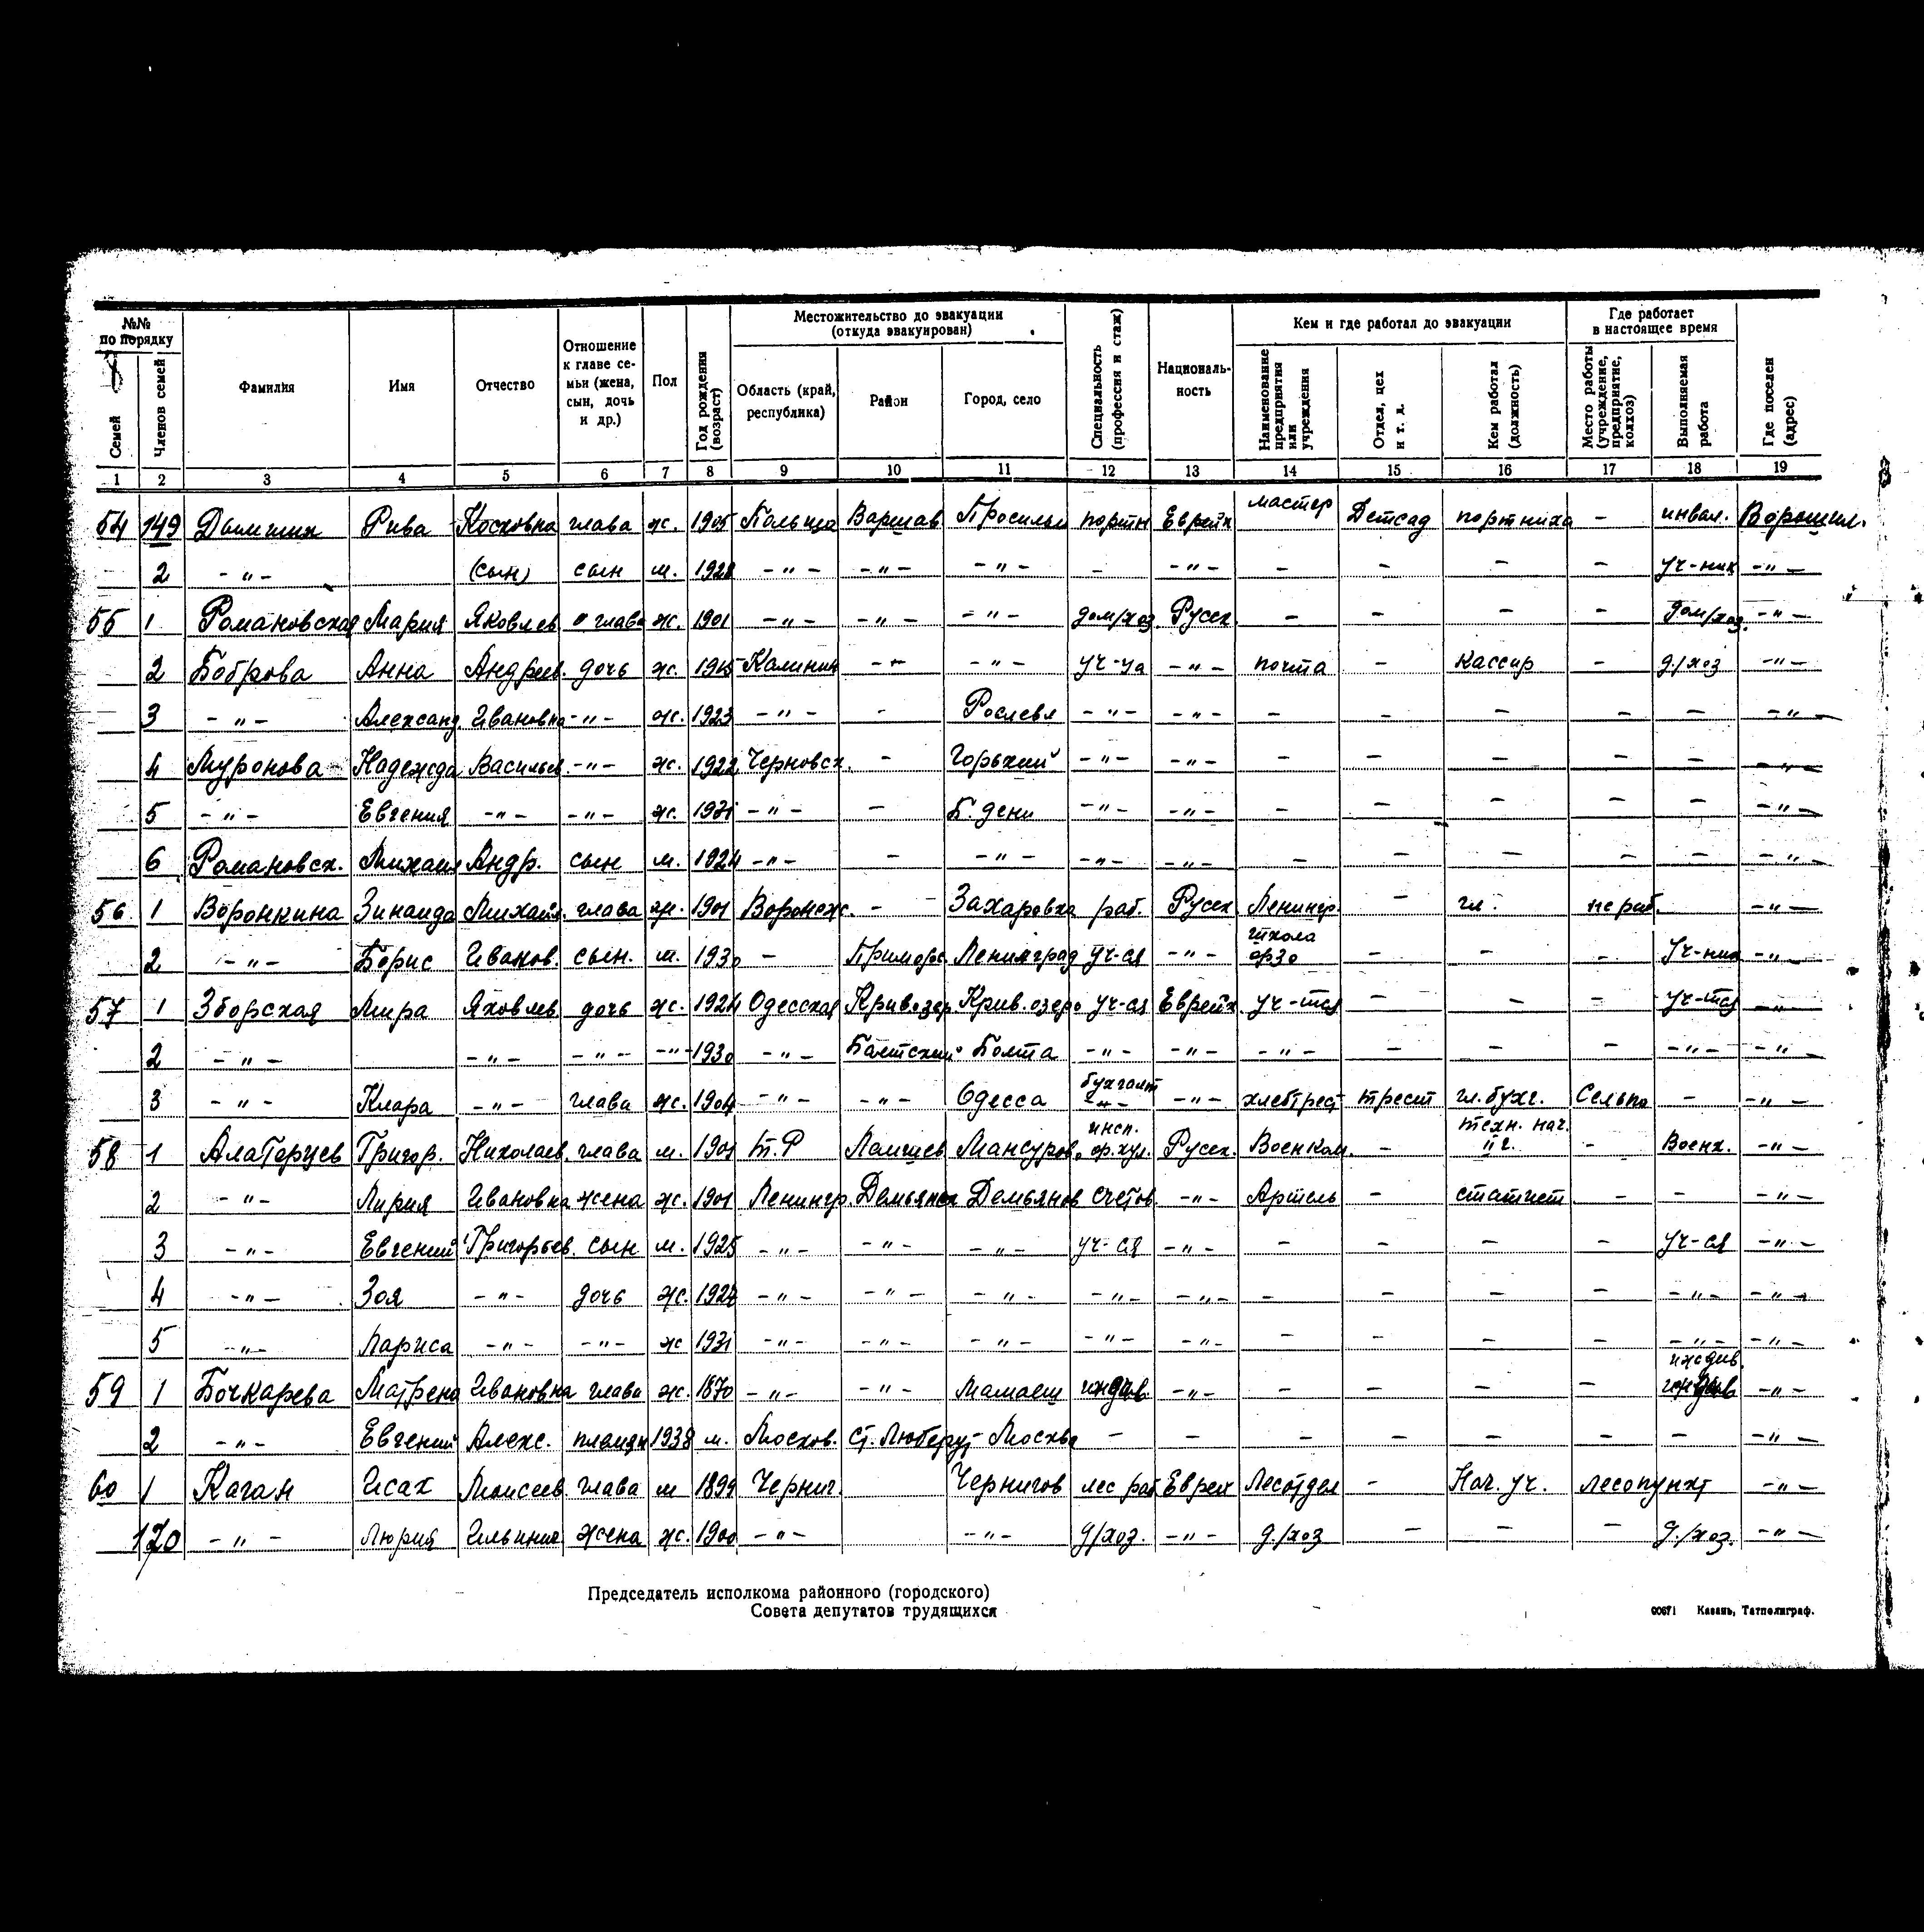 №№ по порядку
Местожительство до эвакуации (откуда эвакуирован)
Кем и где работал до эвакуации
Где работает в настоящее время
Семей
Членов семей
Фамилия
Имя
Отчество
Отношение к главе семьи (жена, сын, дочь и др.)
Пол
Год рождения (возраст)
Область (край, республика)
Район
Город, село
Специальность (профессия и стаж)
Националь-ность
Наименование предприятия или учреждения
Отдел, цех и т. д.
Кем работал (должность)
Место работы (учреждение, предприятие, колхоз)
Выполняемая работа
Где поселен (адрес)
1 2 3 4 5 6 7 8 9 10 11 12 13 14 15 16 17 18 19
54 149 Рива глава ж. 1905 Польша Варшав портн Еврейк мастер Детсад портниха - инвал. Ворошил.
2 -"- (сын) сын м. 1928 -"- -"- -"- - -"- - - - - уч-ник -"-
55 1 Романовская Мария Яковлев глава ж. 1901 -"- -"- -"- дом/хоз. Русск. - - - - дом/хоз. -"-
2 Боброва Анна Андреев. дочь ж. Калинин -"- -"- уч-ца -"- почта - кассир - д./хоз -"-
3 -"- Александ. Ивановна -"- ж. 1923 -"- - Рославл -"- -"- - - - - - -"-
4 Муронова Надежда Васильев. -"- ж. 1922 - Горький -"- -"- - - - - - -"-
5 -"- Евгения -"- -"- ж. 1931 -"- - -"- -"- - - - - - -"-
6 Романовск. Михаил Андр. сын м. 1924 -"- - -"- -"- -"- - - - - - -"-
56 1 Воронкина Зинаида Михайл. глава ж. 1901 Воронеж. - Захаровка раб. Русск Ленингр. - гл. не раб. -"-
2 -"- Борис Иванов. сын. м. 1930 - Приморс. Ленинград уч-ся -"- школа - - - Уч-ник -"-
57 1 Зборская Мира Яковлев дочь ж. 1924 Одесская Кривозер. Крив. озеро уч-ся Еврейк. уч-тся - - - уч-тся -"-
2 -"- -"- -"- -"- 1930 -"- Балтский Болта -"- -"- -"- - - - -"- -"-
3 -"- Клара -"- глава ж. 1904 -"- -"- Одесса бухгалт -"- -"- хлебтрест трест гл. бухг. Сельпо - -"-
58 1 Алаторцев Григор. Николаев. глава м. 1901 Т.Р Лаишев Мансуров. инсп. Русск. Военком. - техн. нач. II г. - Военк. -"-
2 -"- Ивановна жена ж. 1901 Ленингр. Демьянск Демьянов счетов. -"- Артель - статист. - - -"-
3 -"- Евгений Григорьев. сын м. 1925 -"- -"- -"- уч-ся -"- - - - - уч-ся -"-
4 -"- Зоя -"- дочь ж. -"- -"- -"- -"- -"- - - - - -"- -"-
5 -"- Лариса -"- -"- ж 1931 -"- -"- -"- -"- -"- - - - - -"- -"-
59 1 Бочкарева Матрена Ивановна глава ж. 1870 -"- -"- Мамаеш иждив -"- - - - - иждив. -"-
2 -"- Евгений Алекс. племян 1938 м. Москов. ст. Люберц. Москва - - - - - - - -"-
60 1 Каган Исак Моисеев. глава м 1899 Черниг. Чернигов лес раб. Еврей Лесотдел - Нач. уч. лесопункт -"-
170 -"- жена ж. 1900 -"- -"- д/хоз. -"- д./хоз - - - д./хоз. -"-
Председатель исполкома районного (городского)
Совета депутатов трудящихся
00671 Казань, Татполиграф.